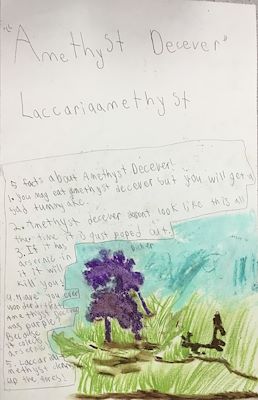 "Amethyst Decever"
Laccariaamethyst
5 facts about Amethyst Decever!
1. You may eat amethyst decever but you will get a
bad tummy ake.
2. Amethyst decever doesnt look like this all
the time it is just poped out.
3. If it has
arsenac in
it it will
kill you!
4. Have you ever
wonderd that
amethyst
was purple?
Because
it colects
arsenac
5. Laccaria
methyst
up the